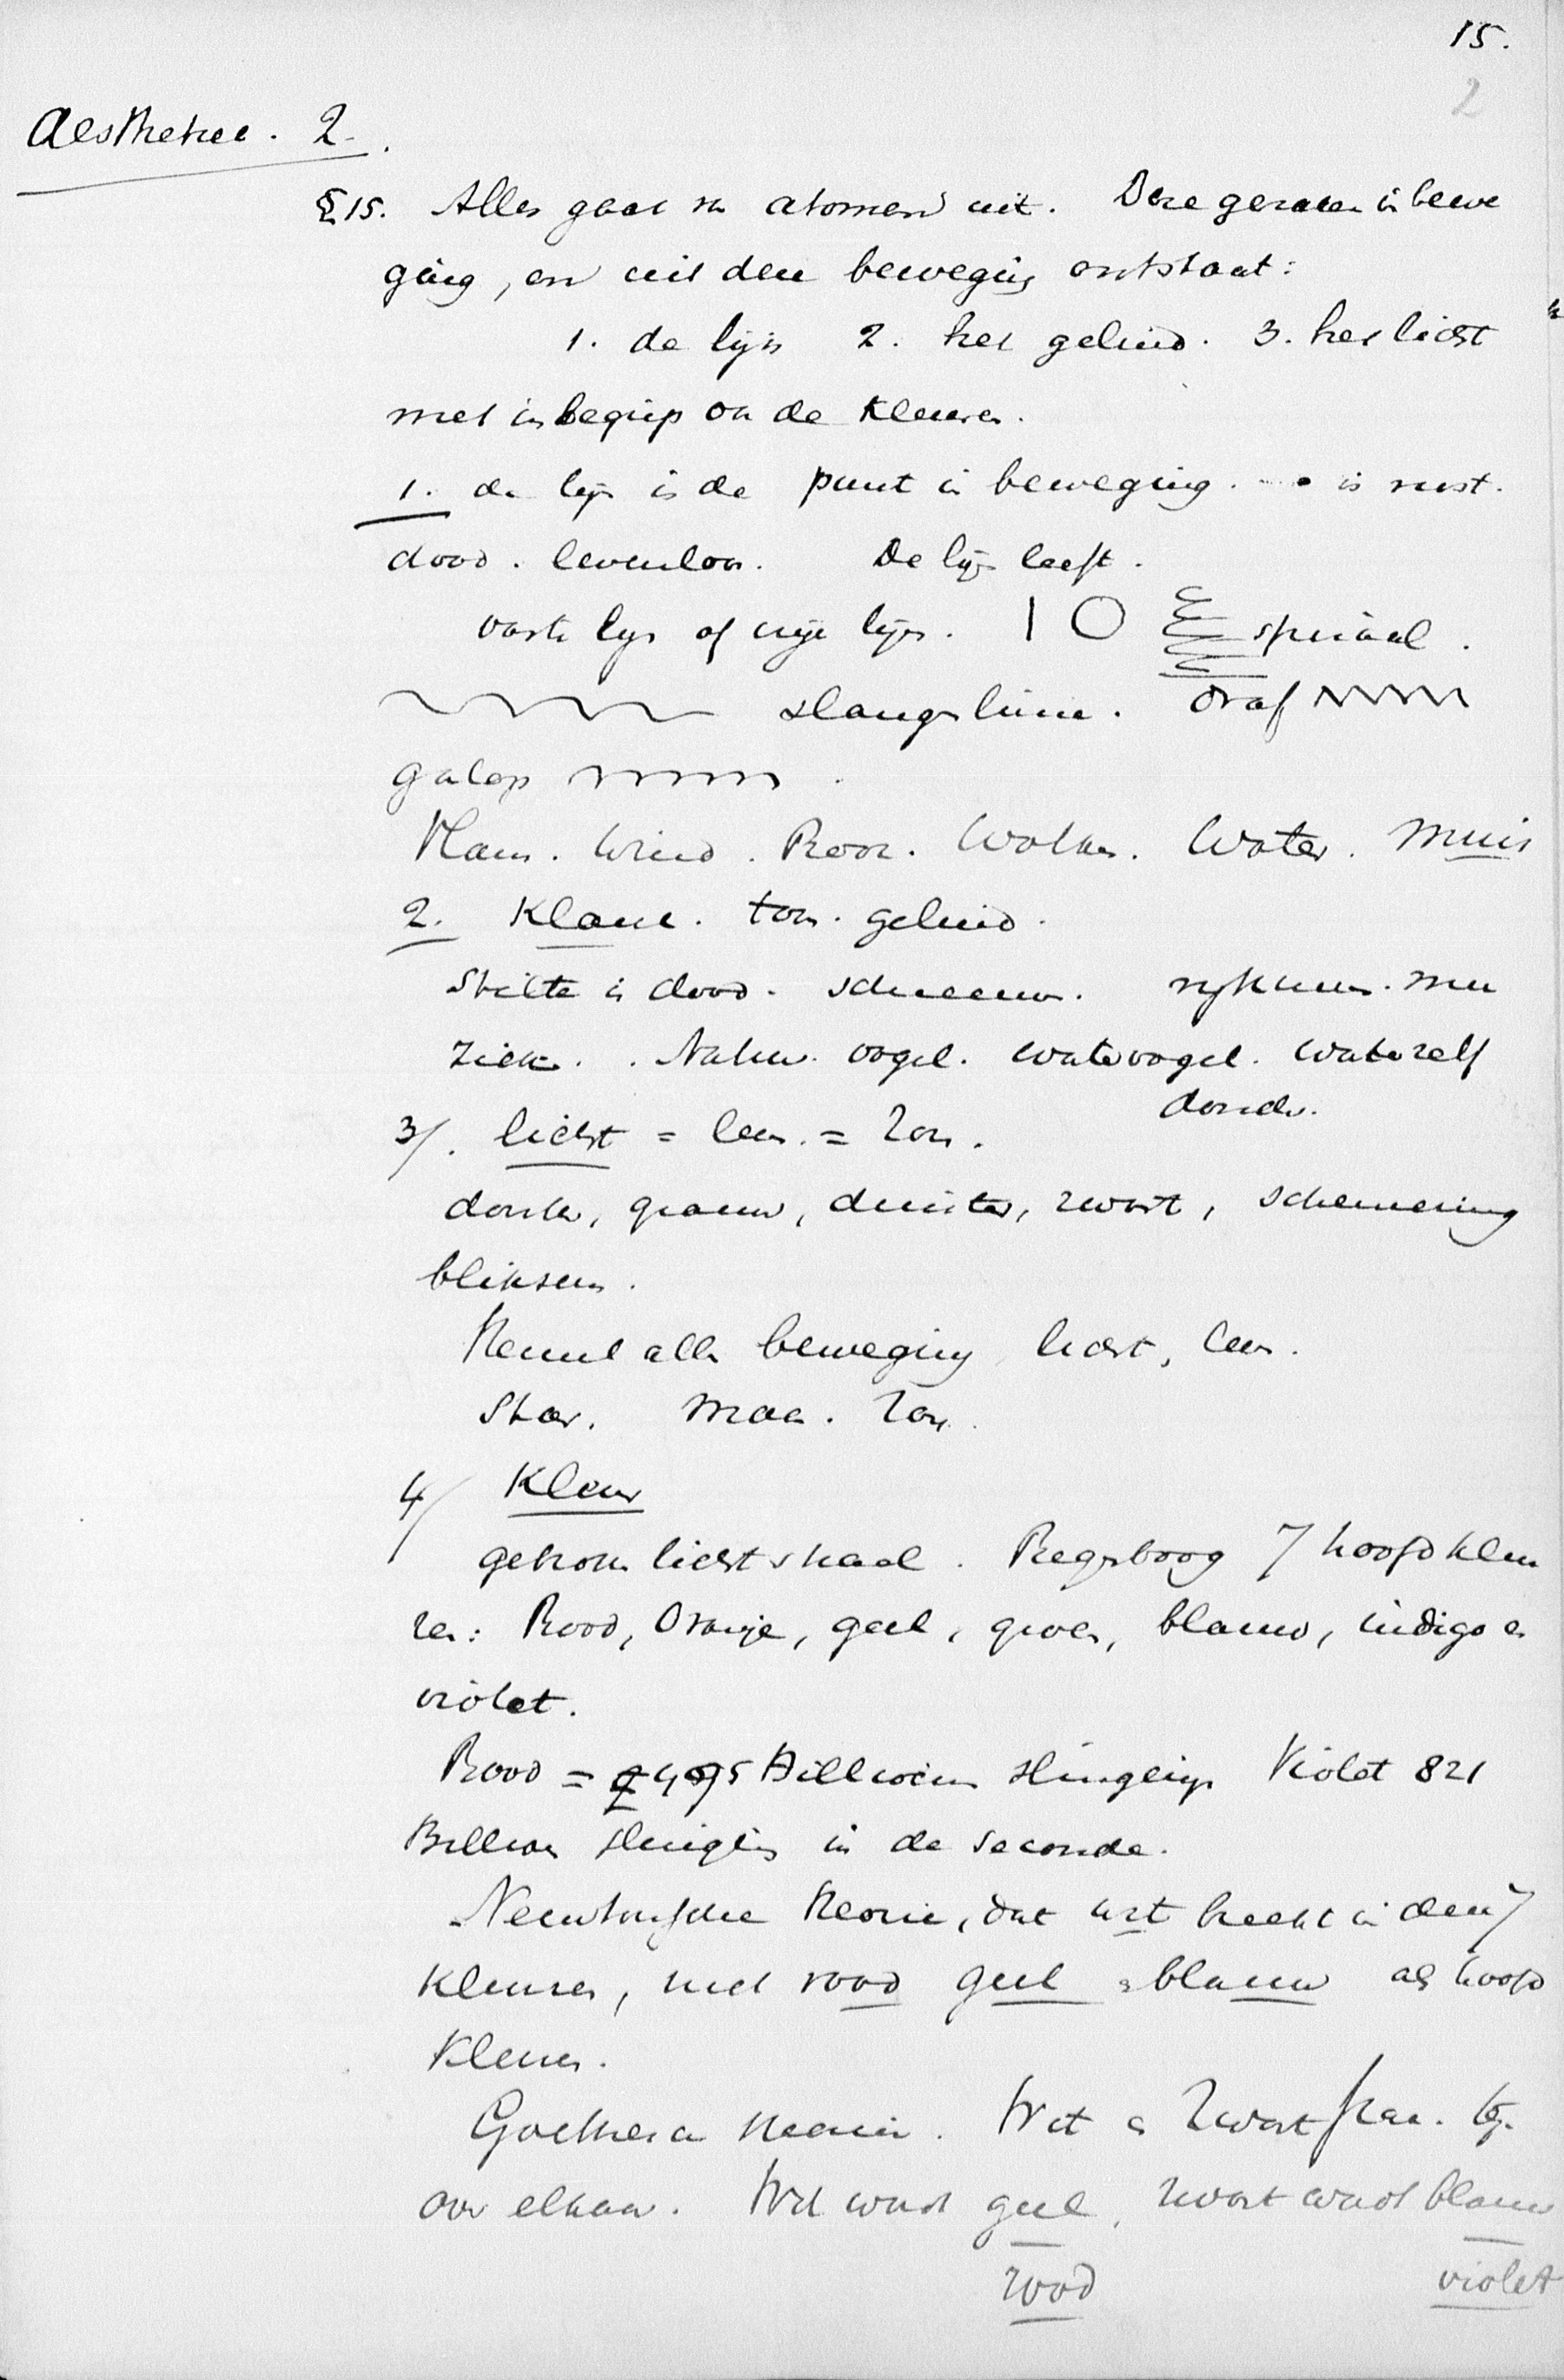 15.
2
Aesthetica. 2.
§15. Alles gaat van atomen uit. Deze geraken in bewe
ging, en uit deze beweging ontstaat:
1. de lijn 2. het geluid. 3. het licht
met inbegrip van de Kleuren.
1. de lijn is de punt in beweging. • is rust.
dood. levenloos. De lijn leeft.
vaste lijn of vrije lijn. spiraal.
slangelinie. draf
galop
Vlam. Wind. Rook. Wolken. Water. Muis
2. Klank. toon. geluid.
Stilte is dood. schreeuw. rythmus. mu
ziek. Natuur. vogel. watervogel. water zelf
donder.
3/. licht = leven. = Zon.
donker, grauw, duister, zwart, schemering
bliksem.
Hemel alle beweging, licht, leven.
Star. Maan. Zon.
4/ Kleur
gebroken lichtstraal. Regenboog 7 hoofdkleu
ren: Rood, Oranje, geel, groen, blauw, indigo en
violet.
Rood = 495 Billioen slingeringen Violet 821
Billioen slingeringen in de seconde.
Newtonsche theorie, dat wit breekt in deze 7
Kleuren, met rood geel blauw als hoofd
Kleuren.
Goethes theorie. Wit en Zwart staan teg.
over elkaar. Wit wordt geel, zwart wordt blauw
rood violet